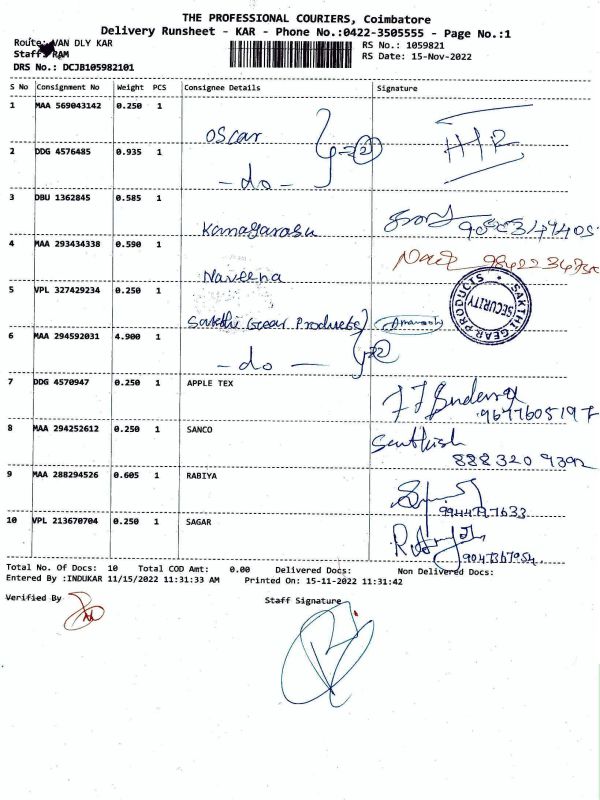 THE PROFESSIONAL COURIERS, Coimbatore
Delivery Runsheet - KAR - Phone No.:0422-3505555 - Page No.:1
Route: VAN DLY KAR
RS No.: 1059821
Staff: RAM
RS Date: 15-Nov-2022
DRS No.: DCJB105982101
S No Consignment No Weight PCS Consignee Details Signature
1 MAA 569043142 0.250 1 Oscar
2 DDG 4576485 0.935 1 -do- =2
3 DBU 1362845 0.585 1 Kanagarasu
4 MAA 293434338 0.590 1 Naveena
5 VPL 327429234 0.250 1 Sakthi Gear Products
SAKTHI GEAR PRODUCTS SECURITY
6 MAA 294592031 4.900 1 -do- =2
7 DDG 4570947 0.250 1 APPLE TEX 9677605197
8 MAA 294252612 0.250 1 SANCO Senthish 888320 9392
9 MAA 288294526 0.605 1 RABIYA
10 VPL 213670704 0.250 1 SAGAR
Total No. Of Docs: 10 Total COD Amt: 0.00 Delivered Docs: Non Delivered Docs:
Entered By :INDUKAR 11/15/2022 11:31:33 AM Printed On: 15-11-2022 11:31:42
Verified By
Staff Signature